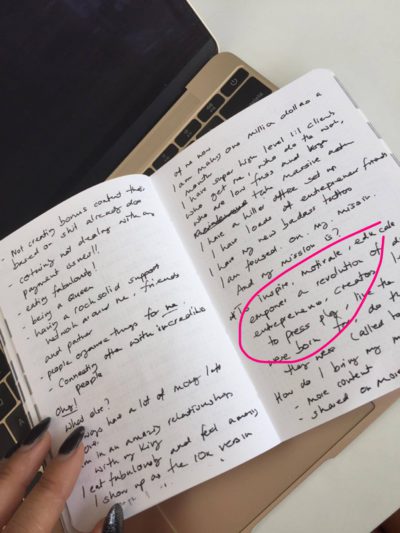 Not creating bonus content the
based on shit already done
- cotwing not dealing with any
payment issues!!
- eating fabulously!
- being a Queen
- having a rock solid support
network around me, friends
and partner
- people organise things for me
- Connecting often with incredible
people
Omg!
What else?
always had a lot of money left
I'm in an amazing relationship
with my King
I eat fabulously and feel amazing
I show up as the 10x version
of me now
I am making one million dollars a
month
I have super high level lil clients
who get me, who do the work,
who are low fuss and
take massive action
I have a killer office set up
I have loads of entrepreneur friends
I have my new badass tattoo
I am focused on my mission.
And my mission is?
To inspire, motivate, educate
empower a revolution of
entrepreneurs, creators,
to press play, like the
were born to do the
they were called to
How do I bring my m
- more content
- shared on more